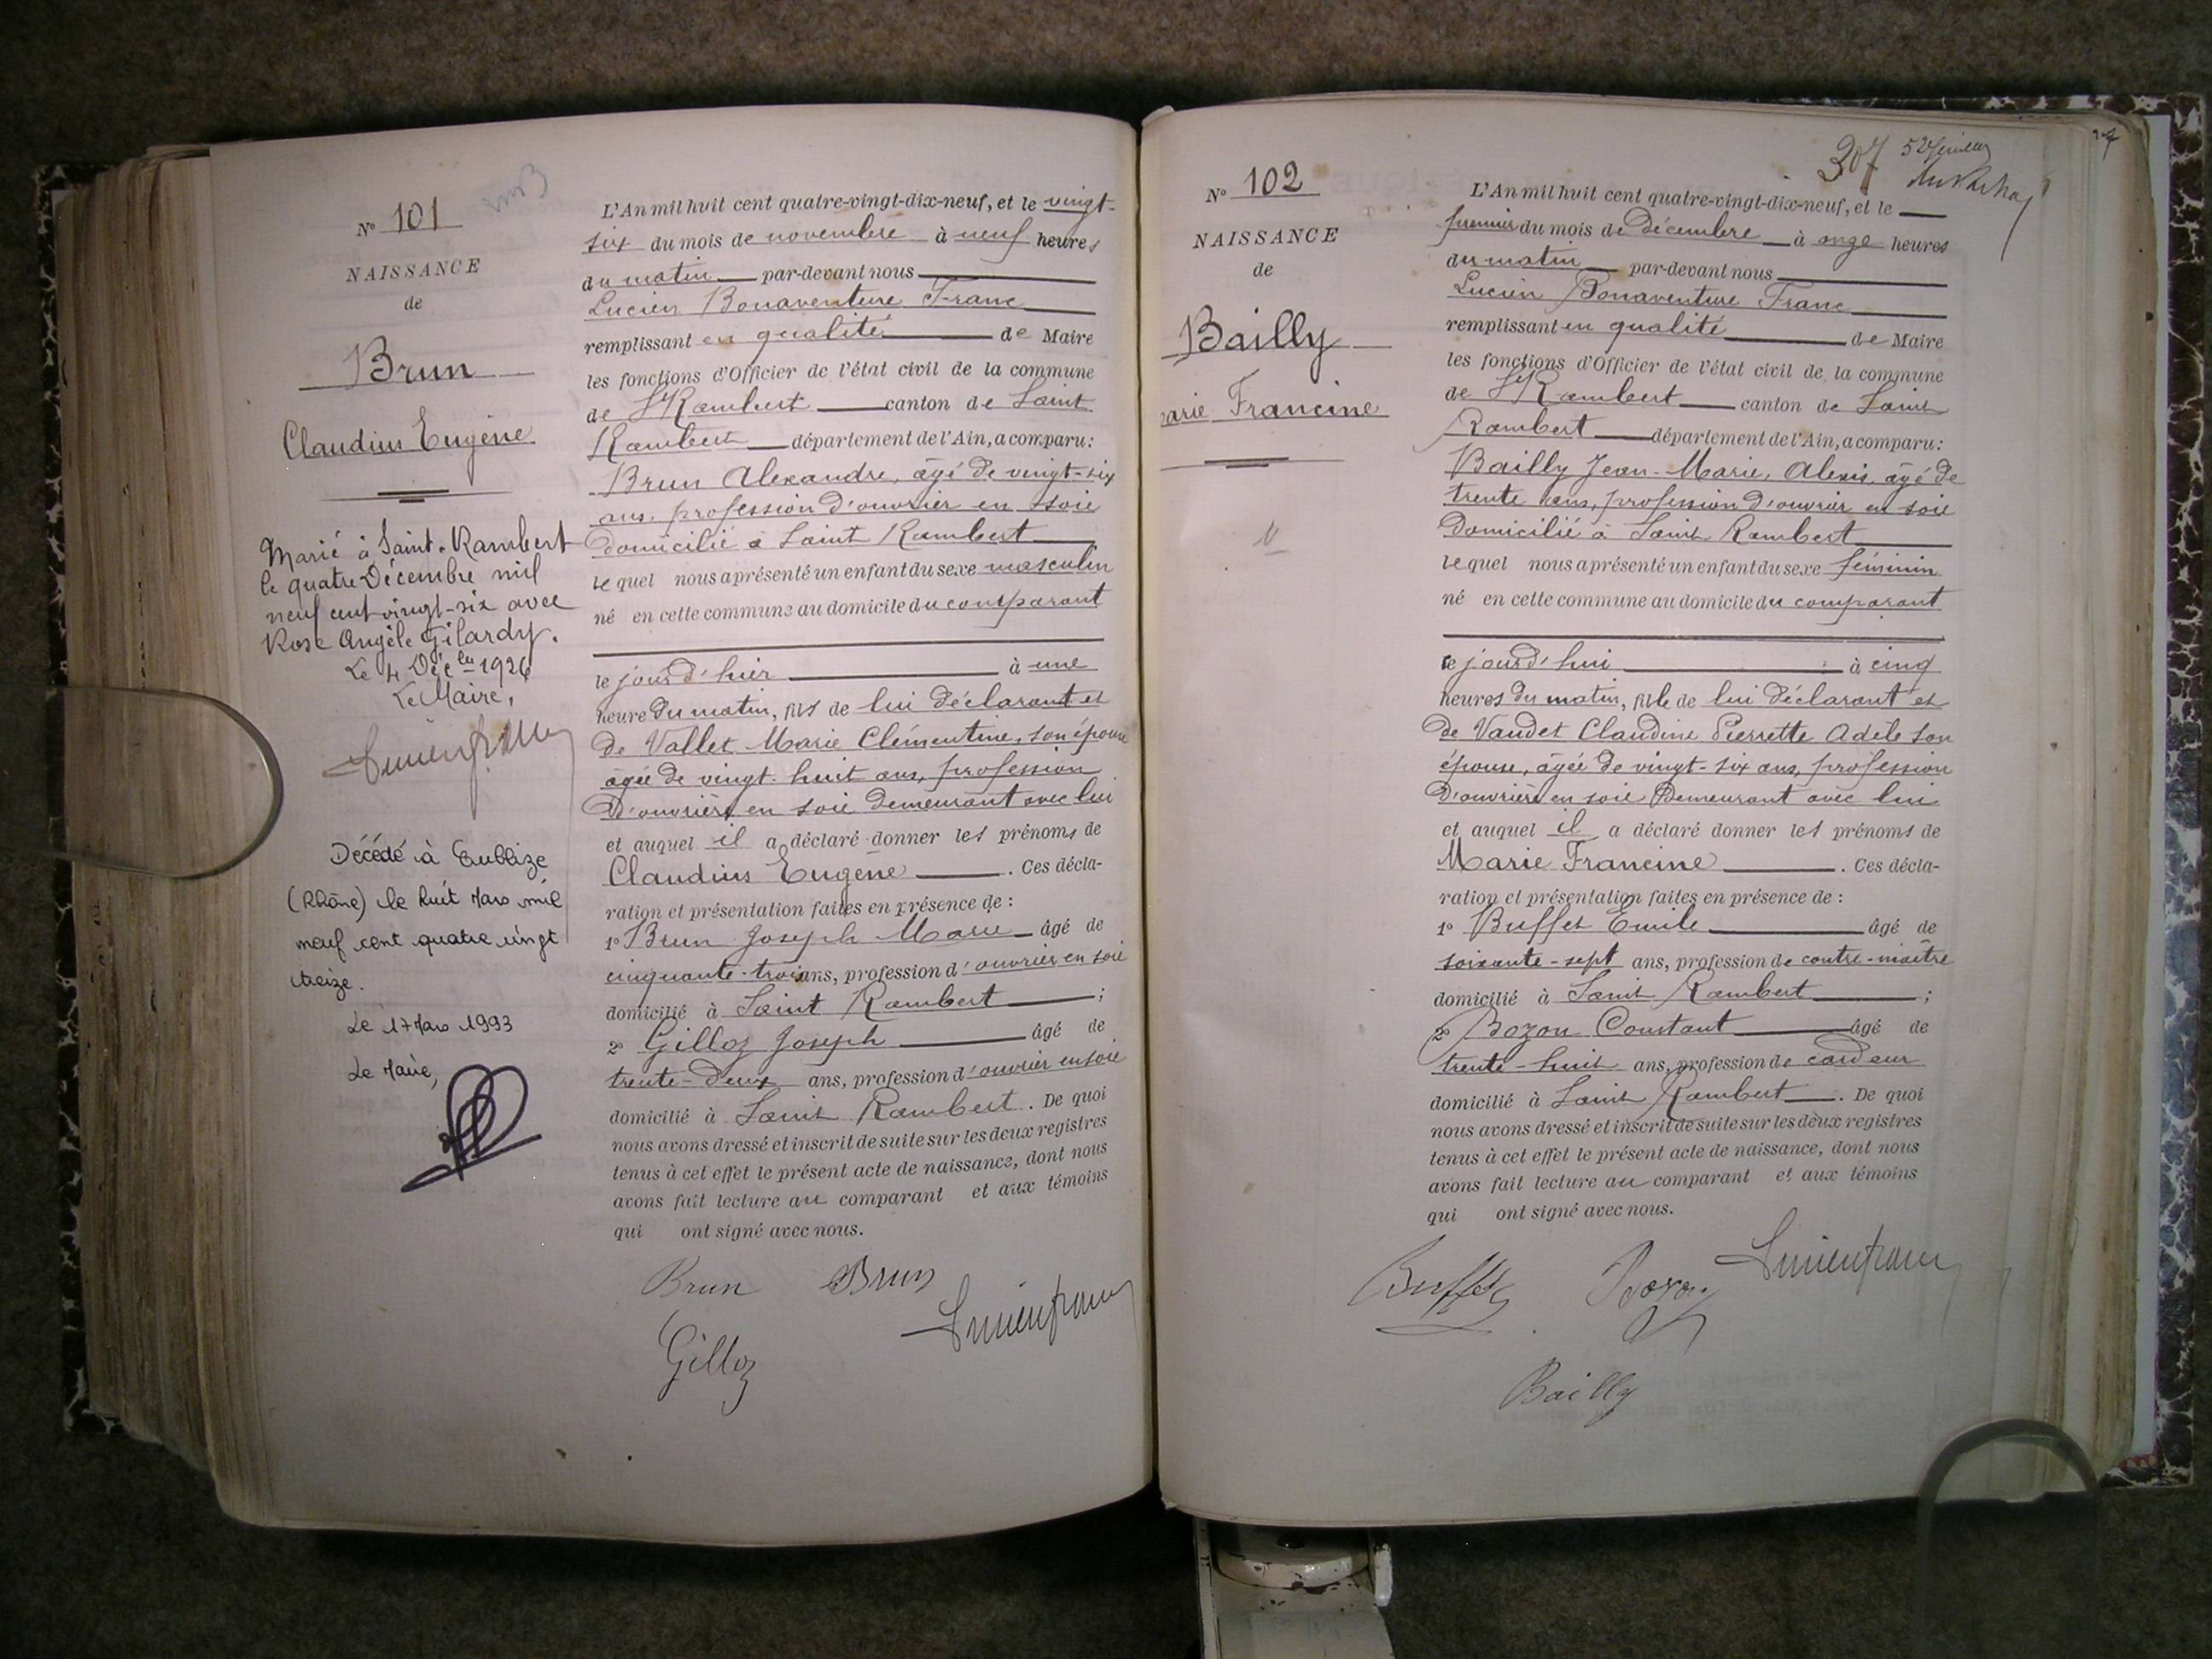 N° 101
NAISSANCE
de
Brun
Claudius Eugène
Marié à Saint-Rambert
le quatre Décembre mil
neuf cent vingt-six avec
Rose Angèle Gilardy.
Le 4 Déc bre 1926
Le Maire,
Lucien franc
Décédé à Cublize
(Rhône) le huit Mars mil
neuf cent quatre vingt
treize.
Le 17 Mars 1993
Le Maire,
L'An mil huit cent quatre-vingt-dix-neuf, et le vingt-
six du mois de novembre à neuf heures
du matin par-devant nous
Lucien Bonaventure Franc
remplissant en qualité de Maire
les fonctions d'Officier de l'état civil de la commune
de St Rambert canton de Saint
Rambert département de l'Ain, a comparu:
Brun Alexandre, âgé de vingt-six
ans. profession d'ouvrier en soie
domicilié à Saint Rambert
lequel nous a présenté un enfant du sexe masculin
né en cette commune au domicile du comparant
le jour d'hier à une
heure du matin, fils de lui déclarant et
de Vallet Marie Clémentine, son épouse
âgée de vingt-huit ans, profession
d'ouvrière en soie demeurant avec lui
et auquel il a déclaré donner les prénoms de
Claudius Eugène. Ces décla-
ration et présentation faites en présence de :
1° Brun Joseph Marie âgé de
cinquante-trois ans, profession d'ouvrier en soie
domicilié à Saint Rambert ;
2° Gilloz Joseph âgé de
trente-deux ans, profession d'ouvrier en soie
domicilié à Saint Rambert. De quoi
nous avons dressé et inscrit de suite sur les deux registres
tenus à cet effet le présent acte de naissance, dont nous
avons fait lecture au comparant et aux témoins
qui ont signé avec nous.
Brun Brun
Lucien franc
Gilloz
307
N° 102
NAISSANCE
de
Bailly
arie Francine
L'An mil huit cent quatre-vingt-dix-neuf, et le
premier du mois de Décembre à onze heures
du matin par-devant nous
Lucien Bonaventure Franc
remplissant en qualité de Maire
les fonctions d'Officier de l'état civil de la commune
de St Rambert canton de Saint
Rambert département de l'Ain, a comparu:
Bailly Jean-Marie, Alexis, âgé de
trente ans, profession d'ouvrier en soie
domicilié à Saint Rambert
lequel nous a présenté un enfant du sexe féminin
né en cette commune au domicile du comparant
le jourd'hui à cinq
heures du matin, fille de lui déclarant et
de Vaudet Claudine Pierrette Adèle son
épouse, âgée de vingt-six ans, profession
d'ouvrière en soie demeurant avec lui
et auquel il a déclaré donner les prénoms de
Marie Francine. Ces décla-
ration et présentation faites en présence de :
1° Buffet Emile âgé de
soixante-sept ans, profession de contre-maître
domicilié à Saint Rambert ;
2° Bozon Constant âgé de
trente-huit ans, profession de cardeur
domicilié à Saint Rambert. De quoi
nous avons dressé et inscrit de suite sur les deux registres
tenus à cet effet le présent acte de naissance, dont nous
avons fait lecture au comparant et aux témoins
qui ont signé avec nous.
Buffet Bozon Lucien franc
Bailly